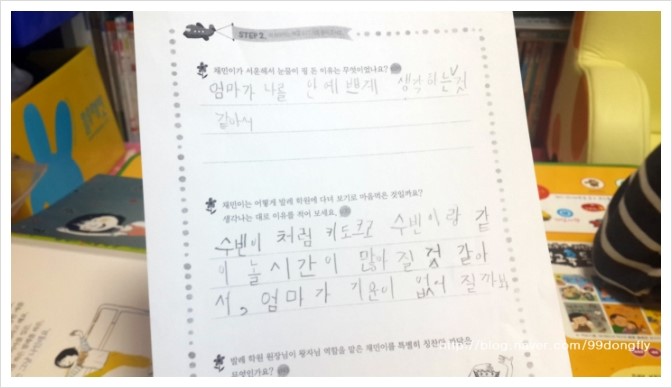 STEP 2.
채민이가 서운해서 눈물이 핑 돈 이유는 무엇이었나요?
엄마가 나를 안 예쁘게 생각하는것
같아서
채민이는 어떻게 발레 학원에 다녀 보기로 마음먹은 것일까요?
생각나는 대로 이유를 적어 보세요.
수빈이 처럼 키도크고 수빈이랑 같
이 놀 시간이 많아 질 것 같아
서, 엄마가 기운이 없어 질까봐
발레 학원 원장님이 왕자님 역할을 맡은 채민이를 특별히 칭찬한 까닭은
무엇인가요?
http://blog.naver.com/99dongfly